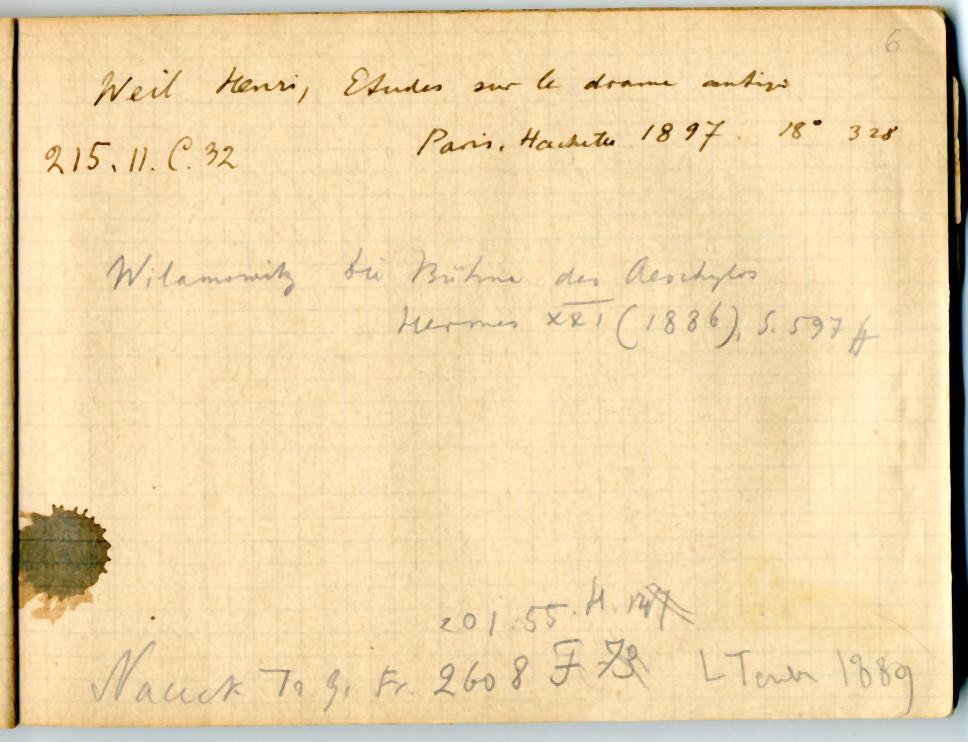 6
Weil Henri, Etudes sur le drame antiqu
215.11.C.32 Paris, Hachette 1897. 18° 328
Wilamowitz Die Bühne des Aeschylos
Hermes XXI (1886), S. 597 ff
201.55.H.
Nauck Tr Gr Fr. 2608 F 73 L Teubn 1889